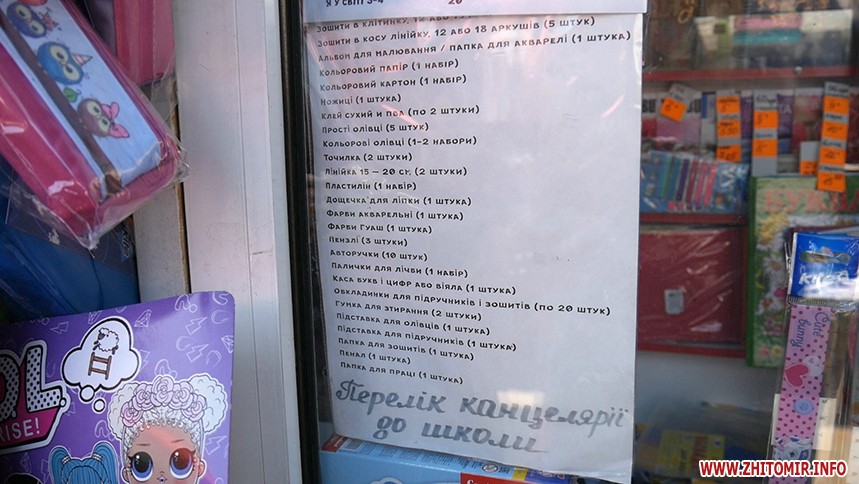 Я У СВІТІ 3-4 20
ЗОШИТИ В КЛІТИНКУ, 12 АБО
ЗОШИТИ В КОСУ ЛІНІЙКУ, 12 АБО 18 АРКУШІВ (5 ШТУК)
АЛЬБОМ ДЛЯ МАЛЮВАННЯ / ПАПКА ДЛЯ АКВАРЕЛІ (1 ШТУКА)
КОЛЬОРОВИЙ ПАПІР (1 НАБІР)
КОЛЬОРОВИЙ КАРТОН (1 НАБІР)
НОЖИЦІ (1 ШТУКА)
КЛЕЙ СУХИЙ И ПВА (ПО 2 ШТУКИ)
ПРОСТІ ОЛІВЦІ (5 ШТУК)
КОЛЬОРОВІ ОЛІВЦІ (1-2 НАБОРИ)
ТОЧИЛКА (2 ШТУКИ)
ЛІНІЙКА 15 – 20 СГ. (2 ШТУКИ)
ПЛАСТИЛІН (1 НАБІР)
ДОЩЕЧКА ДЛЯ ЛІПКИ (1 ШТУКА)
ФАРБИ АКВАРЕЛЬНІ (1 ШТУКА)
ФАРБИ ГУАШ (1 ШТУКА)
ПЕНЗЛІ (3 ШТУКИ)
АВТОРУЧКИ (10 ШТУК)
ПАЛИЧКИ ДЛЯ ЛІЧБИ (1 НАБІР)
КАСА БУКВ І ЦИФР АБО ВІЯЛА (1 ШТУКА)
ОБКЛАДИНКИ ДЛЯ ПІДРУЧНИКІВ І ЗОШИТІВ (ПО 20 ШТУК)
ГУМКА ДЛЯ ЗТИРАННЯ (2 ШТУКИ)
ПІДСТАВКА ДЛЯ ОЛІВЦІВ (1 ШТУКА)
ПІДСТАВКА ДЛЯ ПІДРУЧНИКІВ (1 ШТУКА)
ПАПКА ДЛЯ ЗОШИТІВ (1 ШТУКА)
ПЕНАЛ (1 ШТУКА)
ПАПКА ДЛЯ ПРАЦІ (1 ШТУКА)
Перелік канцелярії
до школи
OL
RISE!
БУКВ
Cute
WWW.ZHITOMIR.INFO